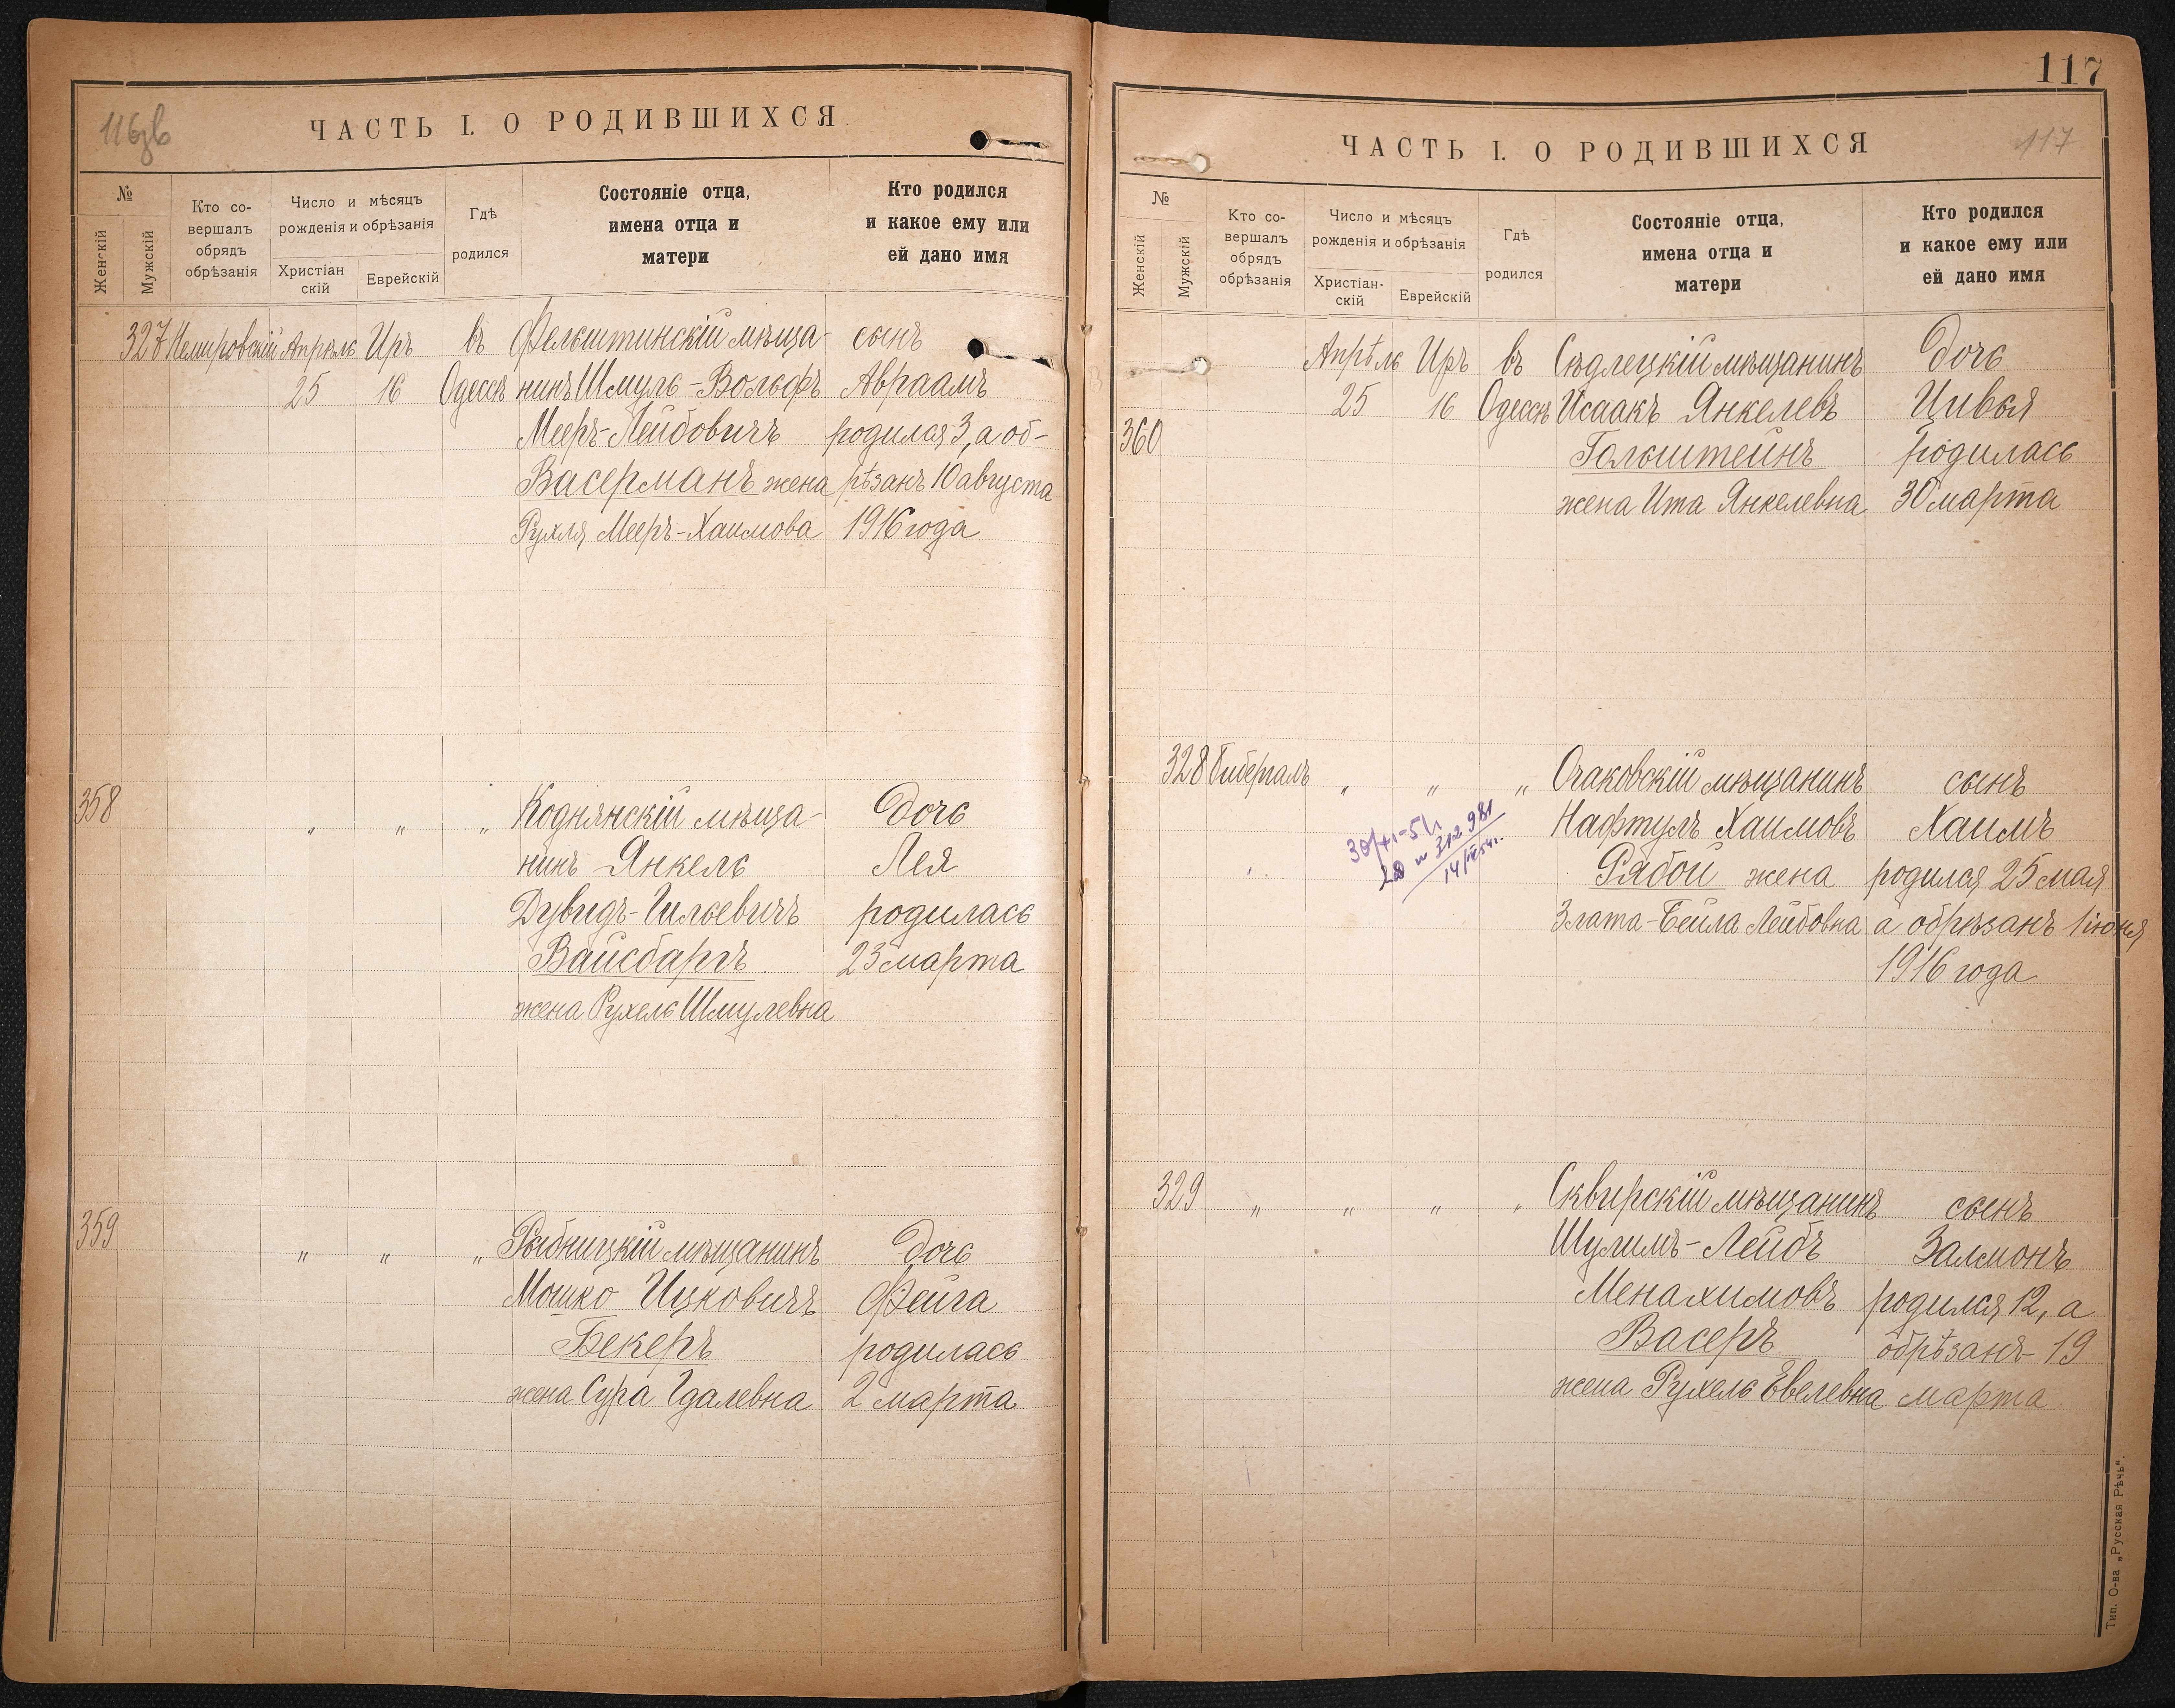 116зв
ЧАСТЬ I. О РОДИВШИХСЯ
№
Женскій
Мужскій
Кто со-
вершалъ
обрядъ
обрѣзанія
Число и мѣсяцъ
рожденія и обрѣзанія
Христіан
скій
Еврейскій
Гдѣ
родился
Состояніе отца,
имена отца и
матери
Кто родился
и какое ему или
ей дано имя
327 Немировскій Апрѣль Иръ въ Фельштинскій мѣща- сынъ
25 16 Одессѣ нинъ Шмуль-Вольфъ Авраамъ
Мееръ-Лейбовичъ родился 3, а об-
Васерманъ жена рѣзанъ 10 августа
Рухля Мееръ-Хаимова 1916 года
358 " " " Коднянскій мѣща- Дочь
нинъ Янкель Лея
Дувидъ-Гильевичъ родилась
Вайсбаргъ 23 марта
жена Рухель Шмулевна
359 " " " Рыбницкій мѣщанинъ Дочь
Мошко Ицковичъ Фейга
Бекеръ родилась
жена Сура Гдалевна 2 марта
117
ЧАСТЬ I. О РОДИВШИХСЯ
117
№
Женскій
Мужскій
Кто со-
вершалъ
обрядъ
обрѣзанія
Число и мѣсяцъ
рожденія и обрѣзанія
Христіан-
скій
Еврейскій
Гдѣ
родился
Состояніе отца,
имена отца и
матери
Кто родился
и какое ему или
ей дано имя
Апрѣль Иръ въ Сѣдлецкій мѣщанинъ Дочь
25 16 Одессѣ Исаакъ Янкелевъ Цивья
360 Гольштейнъ родилась
жена Ита Янкелевна 30 марта
328 Гибергалъ " " " Очаковскій мѣщанинъ сынъ
Нафтулъ Хаимовъ Хаимъ
Рябой жена родился 25 мая
Злата-Бейла Лейбовна а обрѣзанъ 1 іюня
1916 года
329 " " " " Сквирскій мѣщанинъ сынъ
Шулимъ-Лейбъ Залмонъ
Менахимовъ родился 12, а
Васеръ обрѣзанъ 19
жена Рухель Евелевна марта
Тип. О-ва „Русская Рѣчь“.